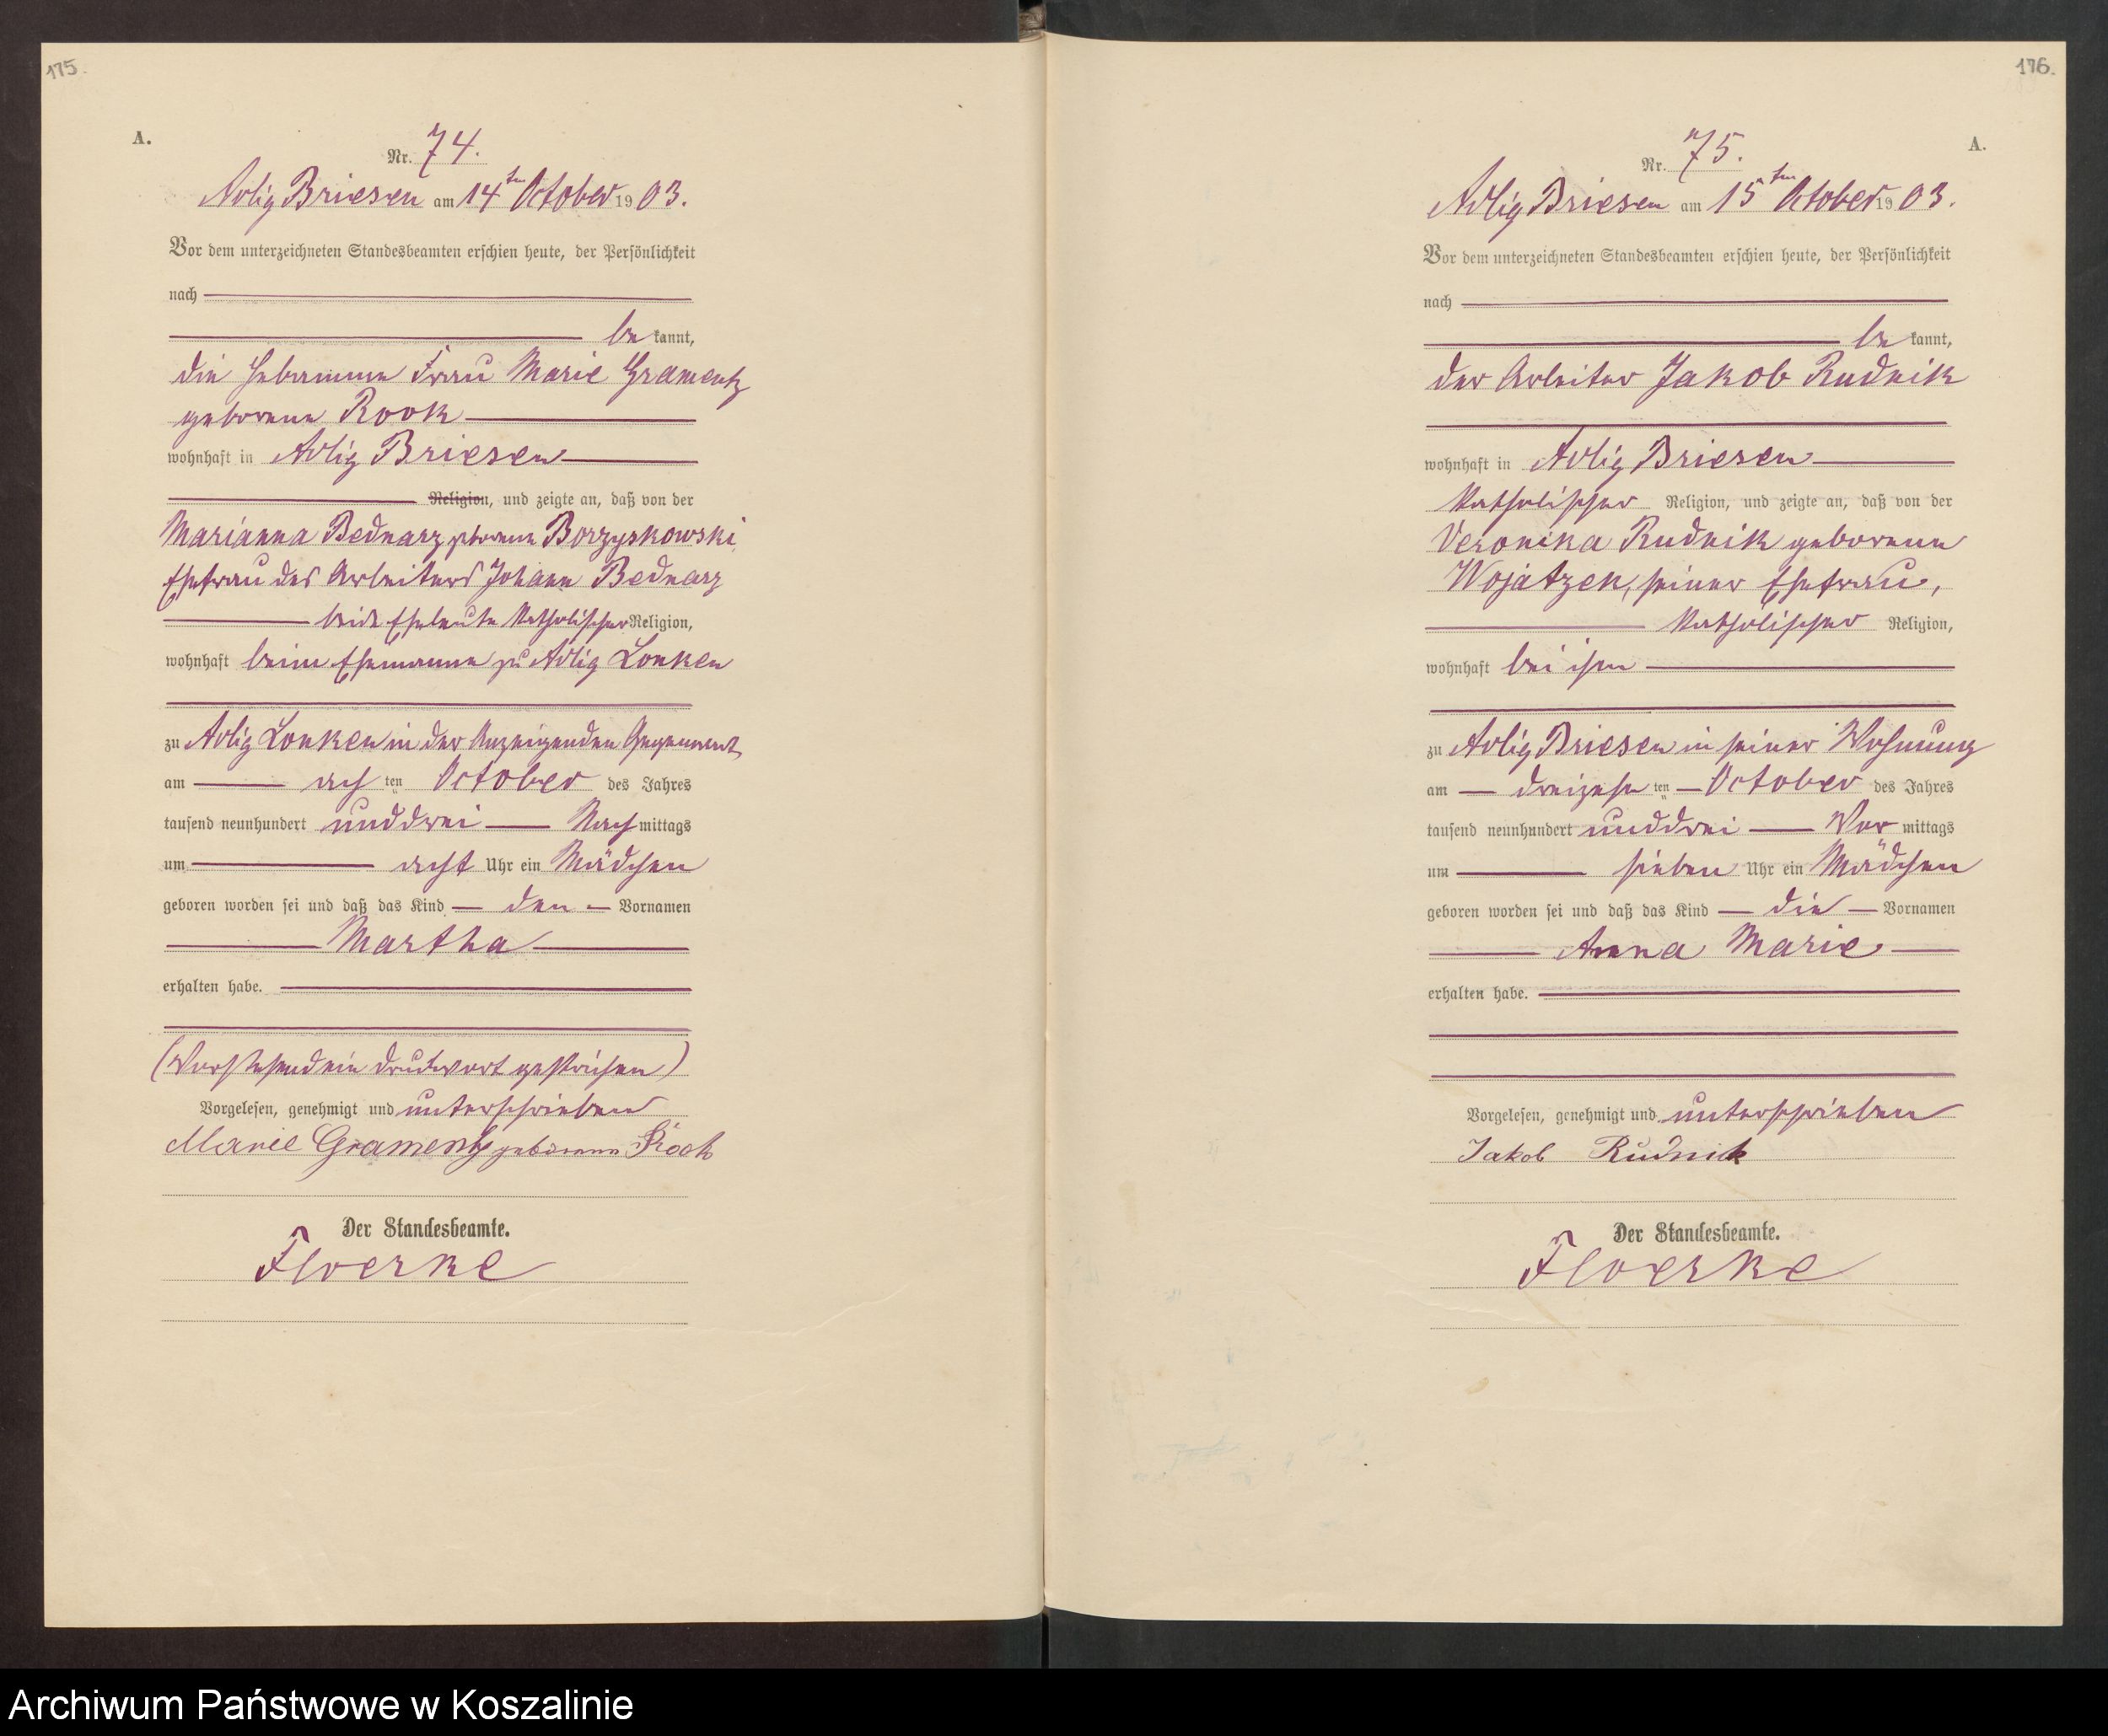 175.
A.
Nr. 74.
Adlig Briesen am 14ten October 1903.
Vor dem unterzeichneten Standesbeamten erschien heute, der Persönlichkeit
nach
be kannt,
die Hebamme Frau Marie Gramentz
geborene Rook
wohnhaft in Adlig Briesen
Religion, und zeigte an, daß von der
Marianna Bednarz geborene Borzyskowski
Ehefrau des Arbeiters Johann Bednarz
beide Eheleute katholischer Religion,
wohnhaft beim Ehemanne zu Adlig Lonken
zu Adlig Lonken in der Anzeigenden Gegenwart
am ach ten October des Jahres
tausend neunhundert unddrei Nach mittags
um acht Uhr ein Mädchen
geboren worden sei und daß das Kind den Vornamen
Martha
erhalten habe.
(Vorstehend ein Druckwort gestrichen)
Vorgelesen, genehmigt und unterschrieben
Marie Gramentz geborene Rook
Der Standesbeamte.
Floerke
176.
A.
Nr. 75.
Adlig Briesen am 15ten October 1903.
Vor dem unterzeichneten Standesbeamten erschien heute, der Persönlichkeit
nach
be kannt,
der Arbeiter Jakob Rudnik
wohnhaft in Adlig Briesen
katholischer Religion, und zeigte an, daß von der
Veronika Rudnik geborene
Wojatzek, seiner Ehefrau,
katholischer Religion,
wohnhaft bei ihm
zu Adlig Briesen in seiner Wohnung
am dreizehn ten October des Jahres
tausend neunhundert unddrei Vor mittags
um sieben Uhr ein Mädchen
geboren worden sei und daß das Kind die Vornamen
Anna Marie
erhalten habe.
Vorgelesen, genehmigt und unterschrieben
Jakob Rudnik
Der Standesbeamte.
Floerke
Archiwum Państwowe w Koszalinie